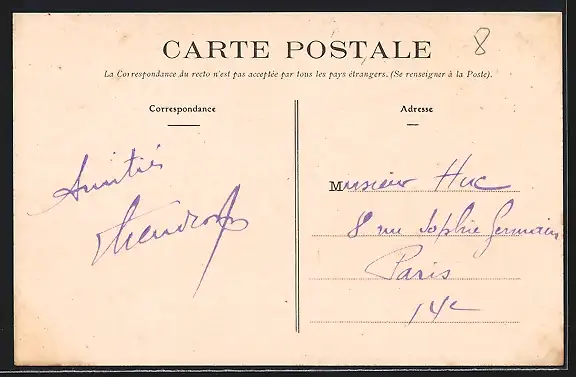 8
CARTE POSTALE
La Correspondance du recto n'est pas acceptée par tous les pays étrangers. (Se renseigner à la Poste).
Correspondance
Amitiés
Adresse
Monsieur Huc
8 rue Sophie Germain
Paris
14e